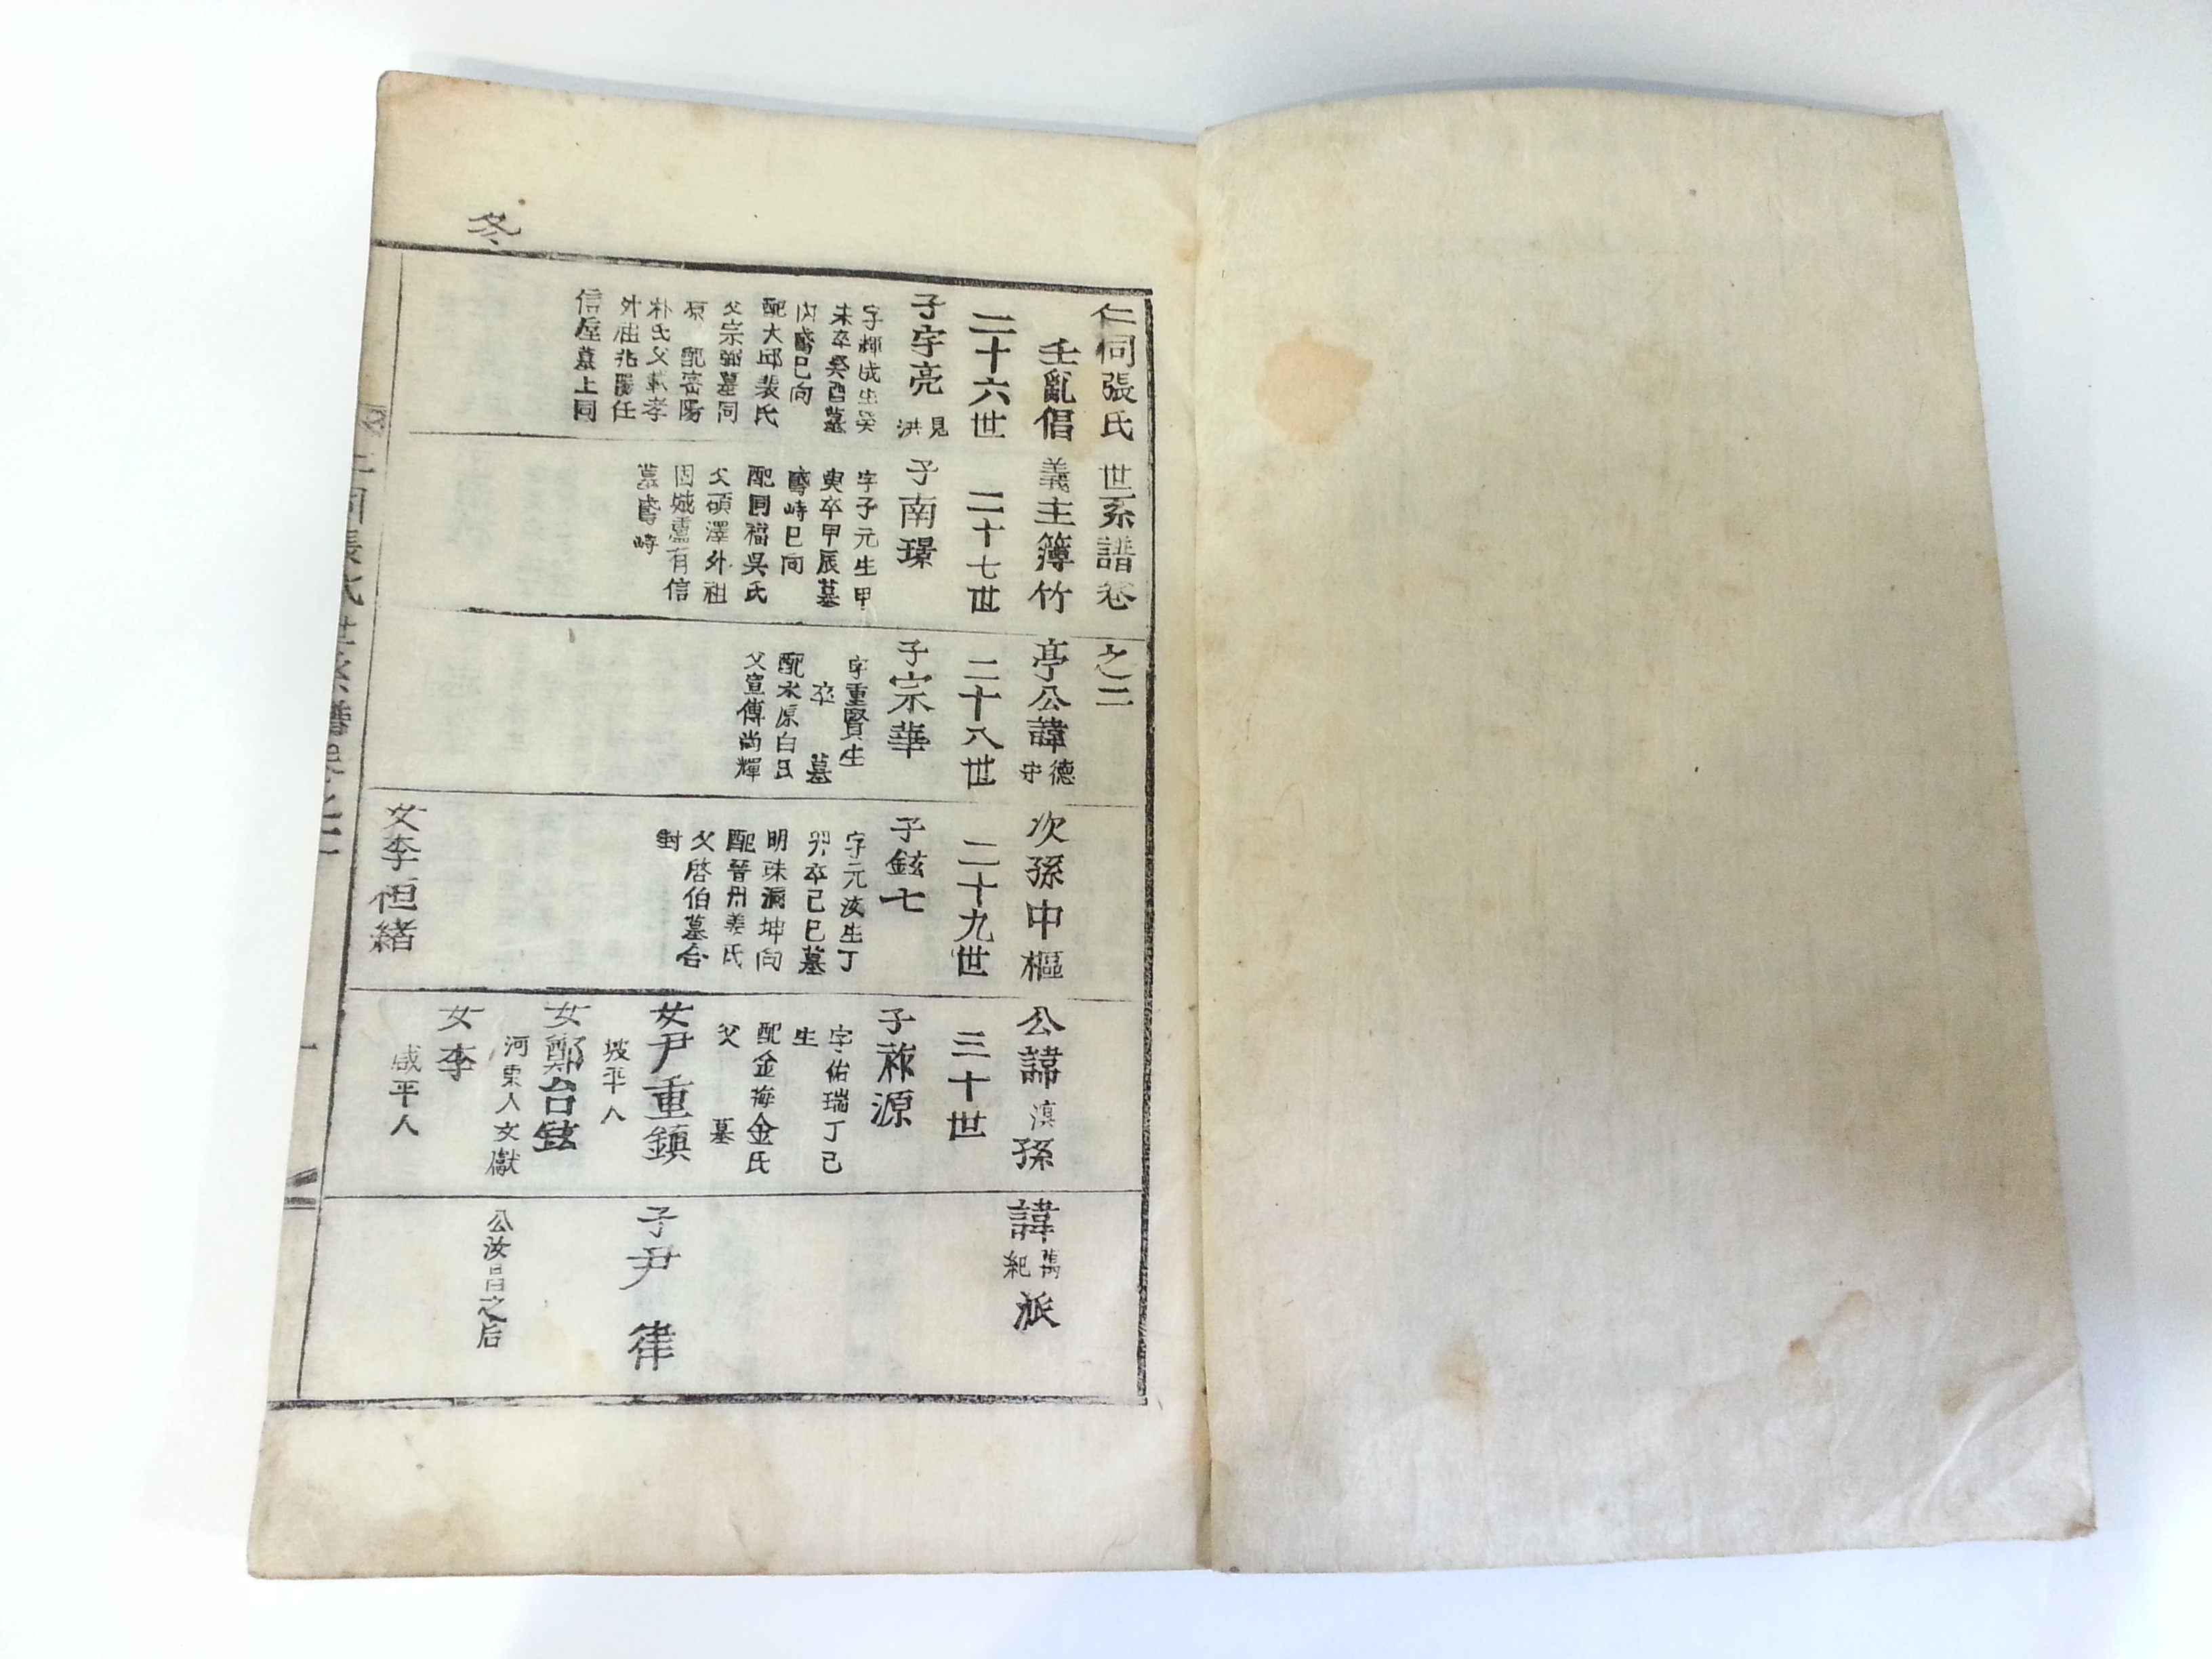 冬
仁同張氏世系譜卷之二
壬亂倡義主簿竹亭公諱德守次孫中樞公諱滉孫諱 紀派
二十六世
子宇亮 見洪
字輝 生癸
未卒癸酉墓
巳向
配大邱裴氏
父宗 墓同
原 配密陽
朴氏父 孝
外祖兆陽任
信 墓上同
二十七世
子南璟
字子元生甲
寅卒甲辰墓
峙巳向
配同福吳氏
父碩澤外祖
固城盧有信
墓 峙
二十八世
子宗華
字重賢生
卒 墓
配水原白氏
父宣傳尚輝
二十九世
子鉉七
字元汝生丁
卯卒己巳墓
明珠洞坤向
配晉州姜氏
父啓伯墓合
封
女李恒緒
三十世
子 源
字佑瑞丁己
生
配金海金氏
父 墓
女尹重鎮
坡平人
子尹 律
女鄭台鉉
河東人文獻
公汝昌之后
女李
咸平人
仁同張氏世系譜卷之二
一